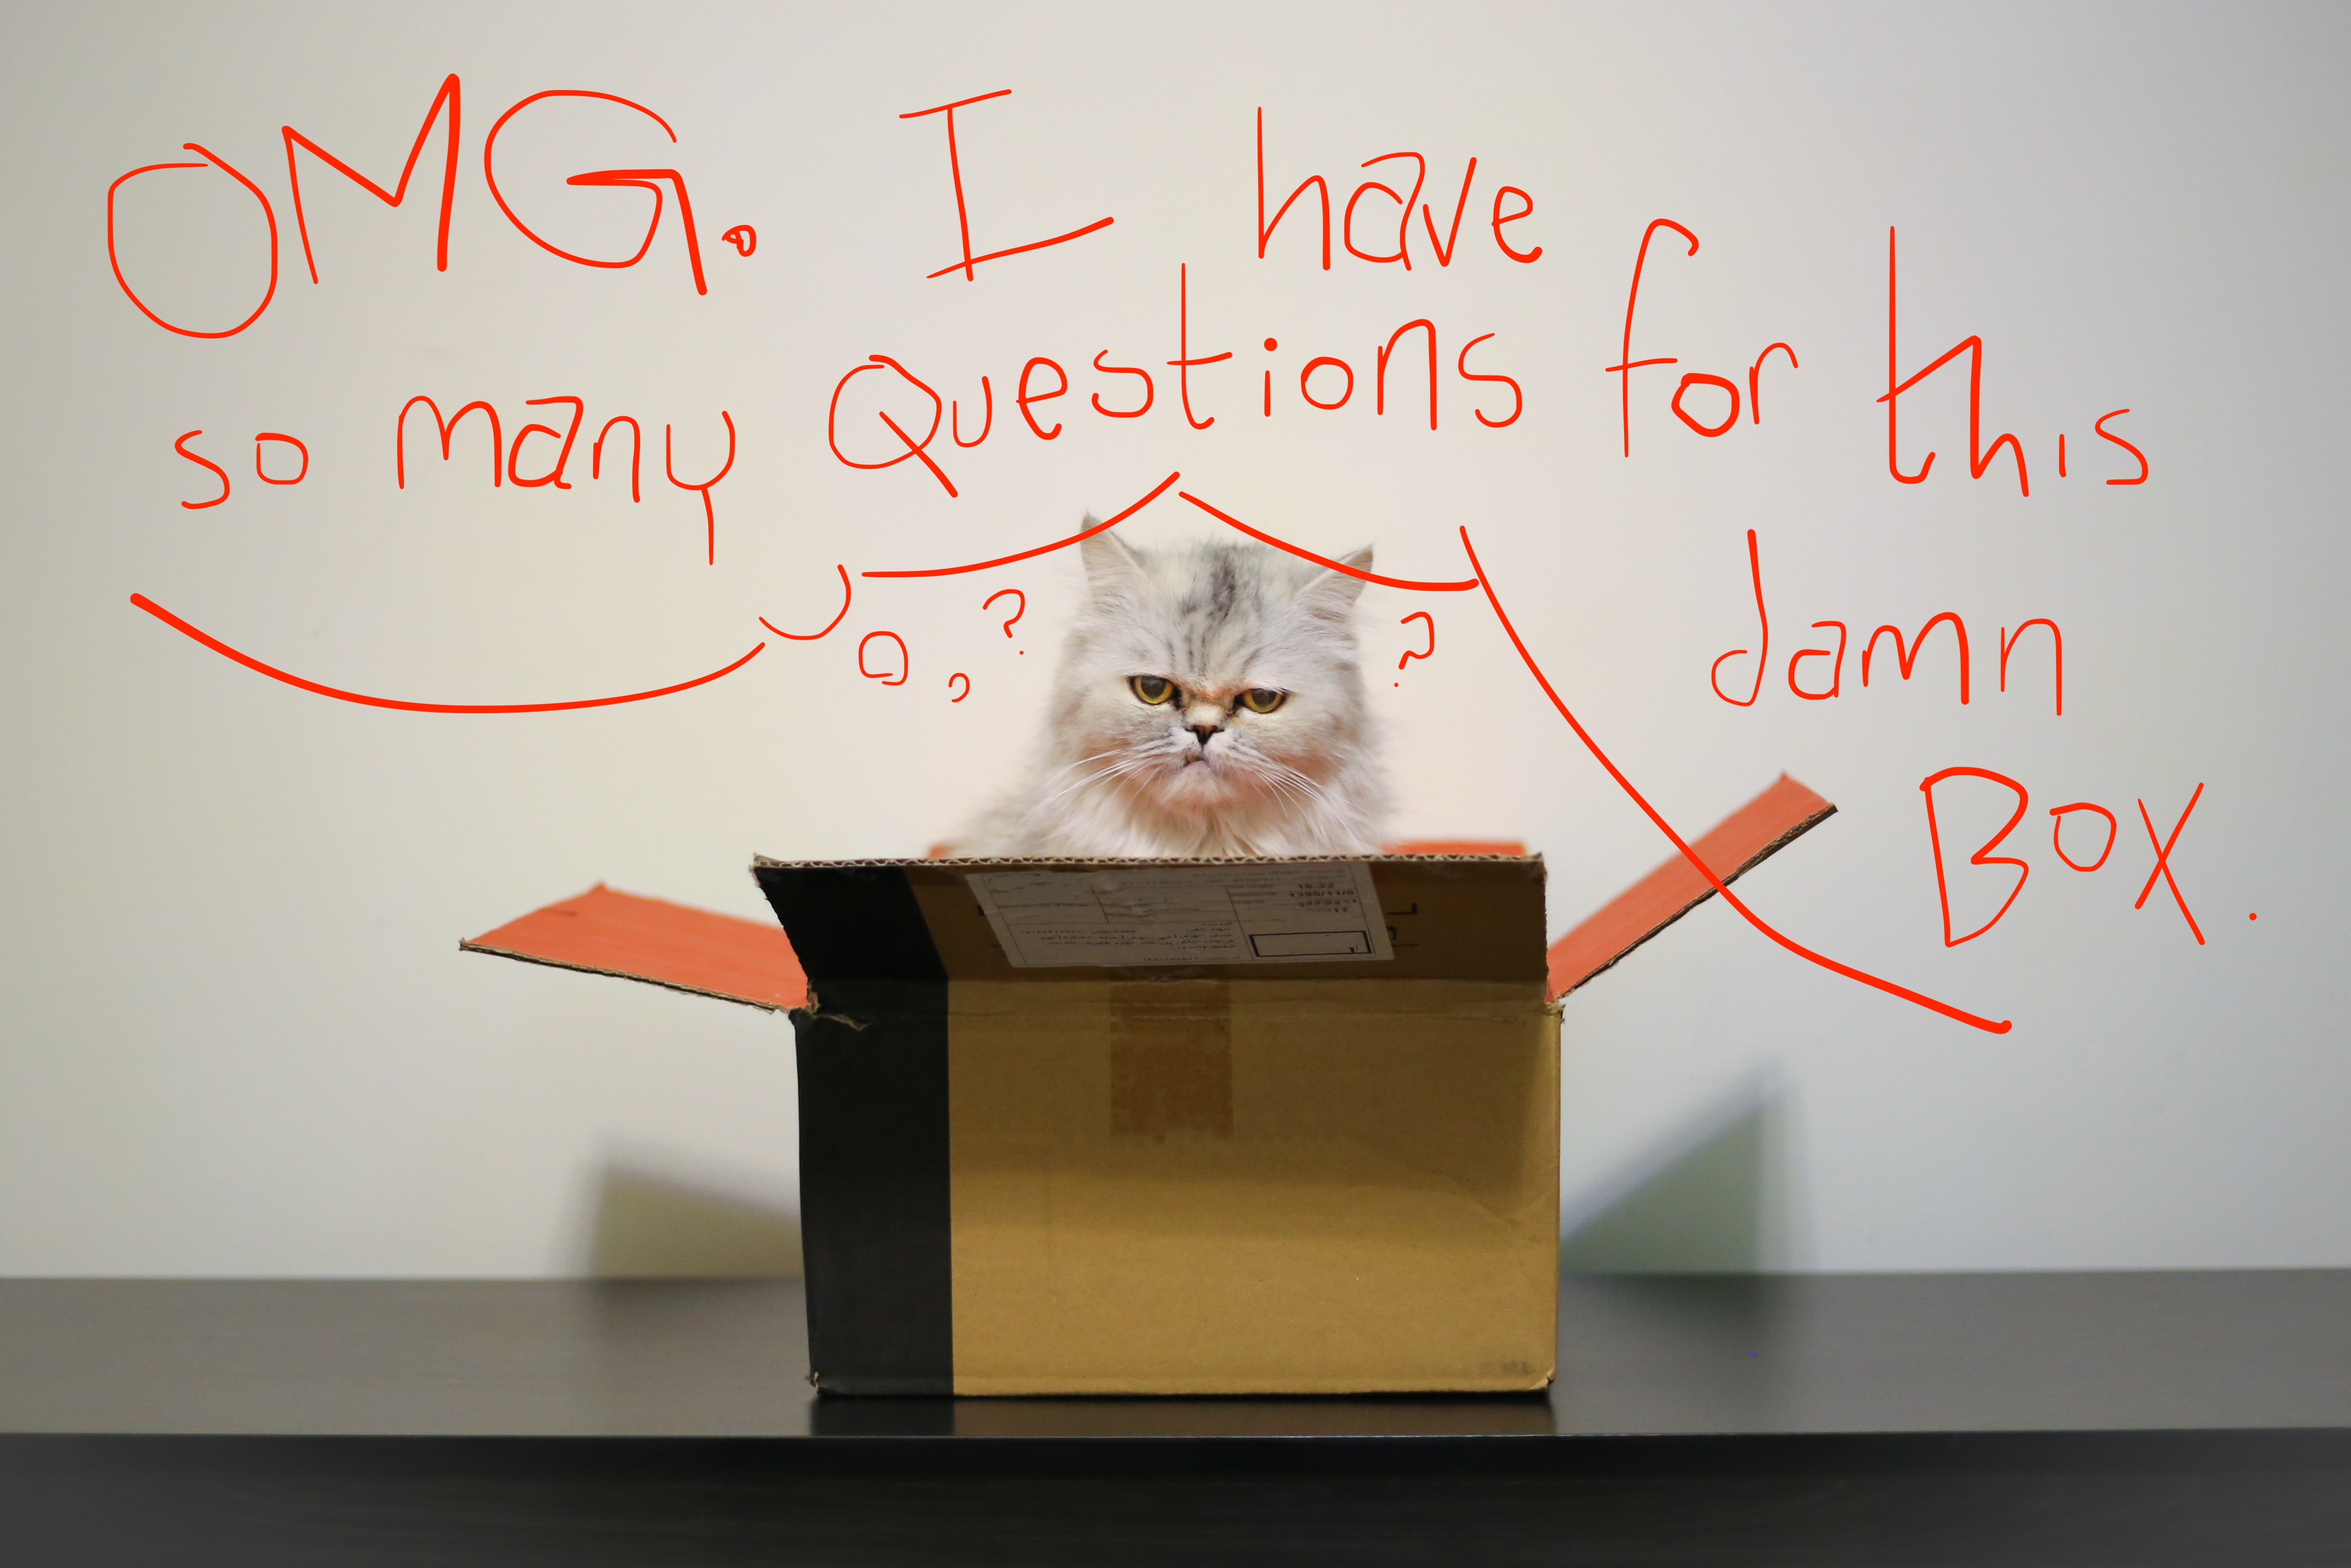 OMG. I have
so many Questions for this
damn
BOX.
? ?